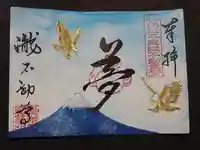 奉拝
夢
瀧不動尊